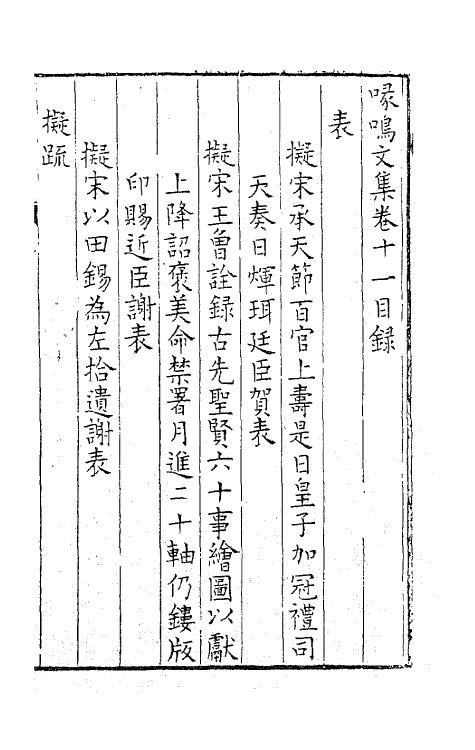 喙鳴文集卷十一目録
表
擬宋承天節百官上壽是日皇子加冠禮司
天奏日煇珥廷臣賀表
擬宋王曾詮録古先聖賢六十事繪圖以獻
上降詔褒美命禁署月進二十軸仍鏤版
印賜近臣謝表
擬宋以田錫為左拾遺謝表
擬疏